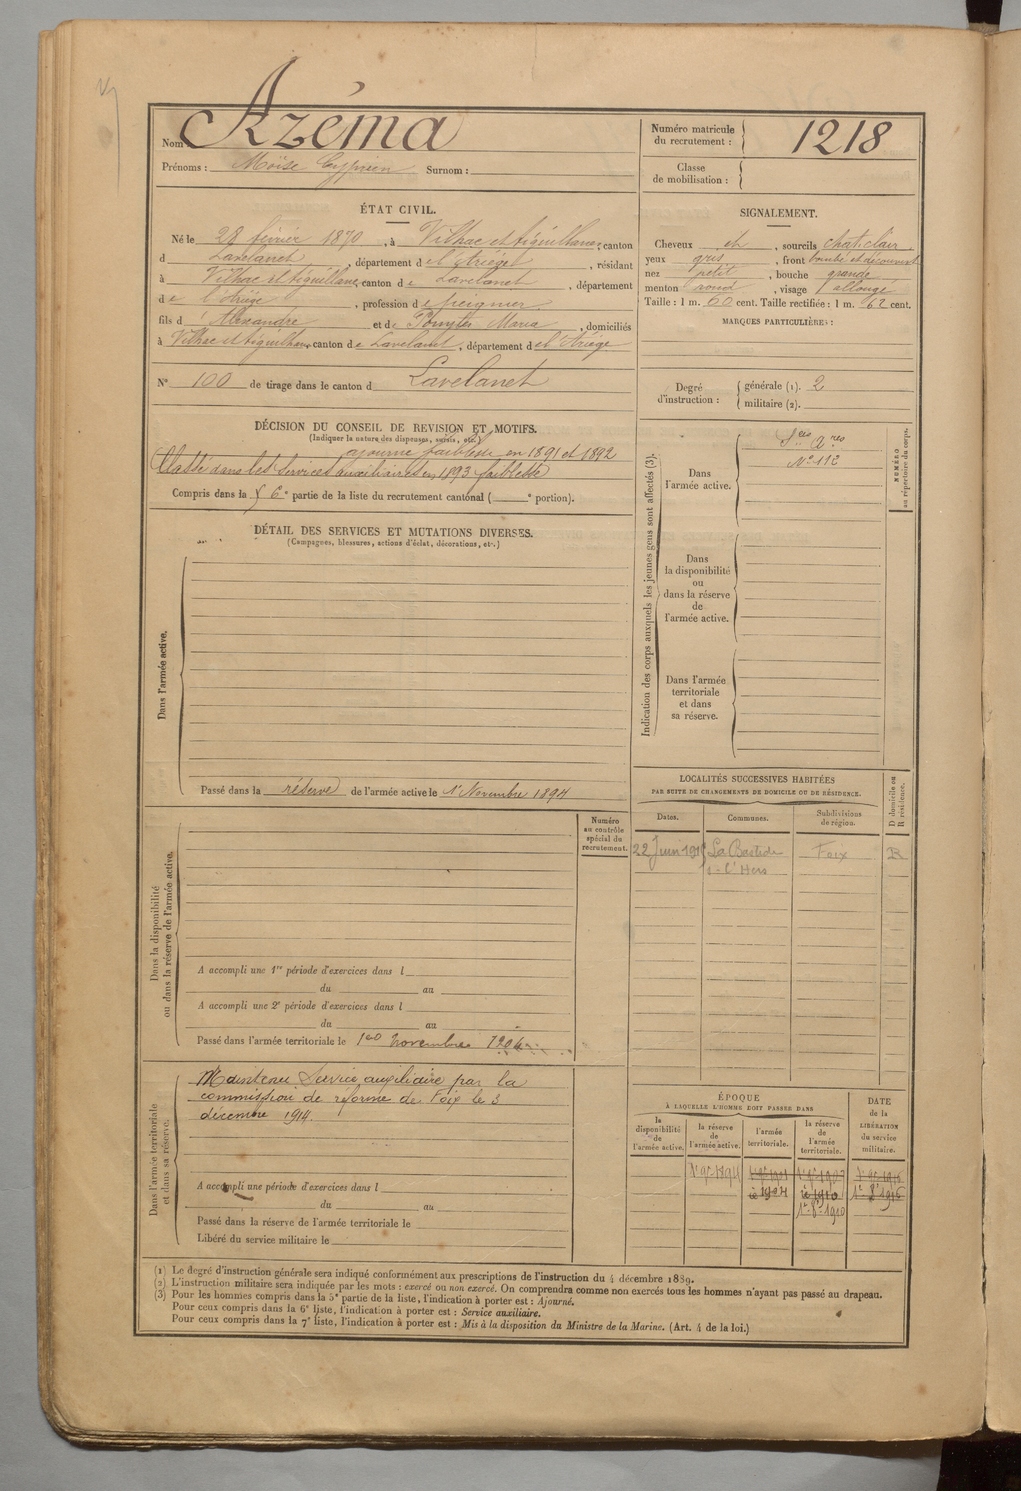 Nom Azéma
Prénoms : Moïse Cyprien Surnom :
Numéro matricule du recrutement : 1218
Classe de mobilisation :
ÉTAT CIVIL.
Né le 28 février 1870, à Vilhac et Aiguillanes, canton
d Lavelanet, département de l'Ariège, résidant
à Vilhac et Aiguillanes canton de Lavelanet, département
de l'Ariège, profession de peigneur
fils d' Alexandre et de Maria, domiciliés
à Vilhac et Aiguillanes canton de Lavelanet, département de l'Ariège
N° 100 de tirage dans le canton d Lavelanet
SIGNALEMENT.
Cheveux et, sourcils chat. clair
yeux gris, front bombé et découvert
nez petit, bouche grande
menton rond, visage allongé
Taille : 1 m. 60 cent. Taille rectifiée : 1 m. 62 cent.
MARQUES PARTICULIÈRES :
Degré d'instruction : générale (1). 2
militaire (2).
DÉCISION DU CONSEIL DE REVISION ET MOTIFS.
(Indiquer la nature des dispenses, sursis, etc.)
ajourné faiblesse en 1891 et 1892
Classé dans les Services auxiliaires en 1893 faiblesse
Compris dans la 6e partie de la liste du recrutement cantonal ( e portion).
DÉTAIL DES SERVICES ET MUTATIONS DIVERSES.
(Campagnes, blessures, actions d'éclat, décorations, etc.)
Dans l'armée active.
Passé dans la réserve de l'armée active le 1er Novembre 1894
Indication des corps auxquels les jeunes gens sont affectés (3).
Dans l'armée active.
Sces ares
N° 112
Dans la disponibilité ou dans la réserve de l'armée active.
Dans l'armée territoriale et dans sa réserve.
NUMÉRO au répertoire du corps.
LOCALITÉS SUCCESSIVES HABITÉES
PAR SUITE DE CHANGEMENTS DE DOMICILE OU DE RÉSIDENCE.
D domicile ou R résidence.
Dates. Communes. Subdivisions de région.
22 Juin La Bastide Foix R
s-l'Hers
Dans la disponibilité ou dans la réserve de l'armée active.
Numéro au contrôle spécial du recrutement.
A accompli une 1re période d'exercices dans l
du au
A accompli une 2e période d'exercices dans l
du au
Passé dans l'armée territoriale le 1er novembre 1904
Dans l'armée territoriale et dans sa réserve.
Maintenu Service auxiliaire par la
commission de réforme de Foix le 3
décembre 1914.
A accompli une période d'exercices dans l
du au
Passé dans la réserve de l'armée territoriale le
Libéré du service militaire le
ÉPOQUE
À LAQUELLE L'HOMME DOIT PASSER DANS
la disponibilité de l'armée active. la réserve de l'armée active. l'armée territoriale. la réserve de l'armée territoriale. DATE de la LIBÉRATION du service militaire.
1904 1910
(1) Le degré d'instruction générale sera indiqué conformément aux prescriptions de l'instruction du 4 décembre 1889.
(2) L'instruction militaire sera indiquée par les mots : exercé ou non exercé. On comprendra comme non exercés tous les hommes n'ayant pas passé au drapeau.
(3) Pour les hommes compris dans la 5e partie de la liste, l'indication à porter est : Ajourné.
Pour ceux compris dans la 6e liste, l'indication à porter est : Service auxiliaire.
Pour ceux compris dans la 7e liste, l'indication à porter est : Mis à la disposition du Ministre de la Marine. (Art. 4 de la loi.)